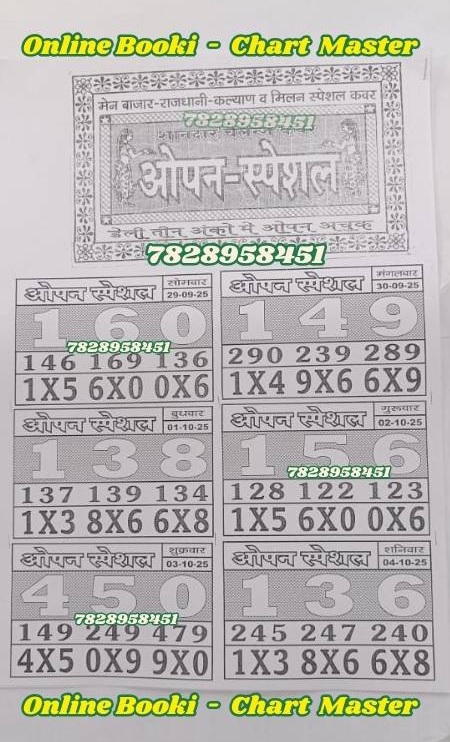 Online Booki - Chart Master
मेन बाजार-राजधानी-कल्याण व मिलन स्पेशल कवर
7828958451
ओपन-स्पेशल
डेली तीन अंको मे ओपन अचुक
7828958451
ओपन स्पेशल सोमवार 29-09-25
160
7828958451
146 169 136
1X5 6X0 0X6
ओपन स्पेशल मंगलवार 30-09-25
149
290 239 289
1X4 9X6 6X9
ओपन स्पेशल बुधवार 01-10-25
138
137 139 134
1X3 8X6 6X8
ओपन स्पेशल गुरुवार 02-10-25
156
7828958451
128 122 123
1X5 6X0 0X6
ओपन स्पेशल शुक्रवार 03-10-25
450
7828958451
149 249 479
4X5 0X9 9X0
ओपन स्पेशल शनिवार 04-10-25
136
245 247 240
1X3 8X6 6X8
Online Booki - Chart Master